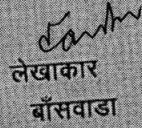 लेखाकार
बाँसवाडा